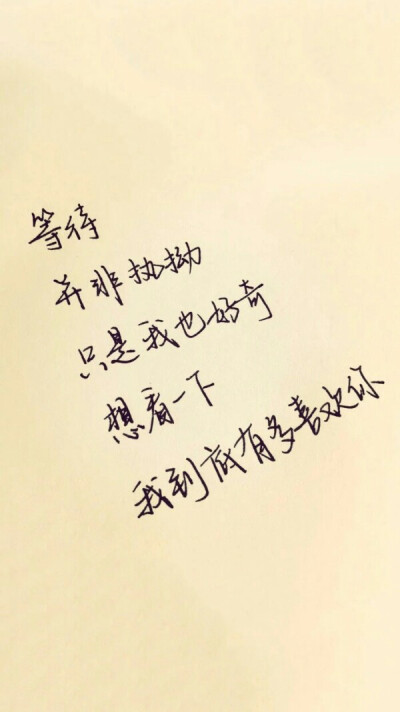 等待
并非执拗
只是我也好奇
想看一下
我到底有多喜欢你